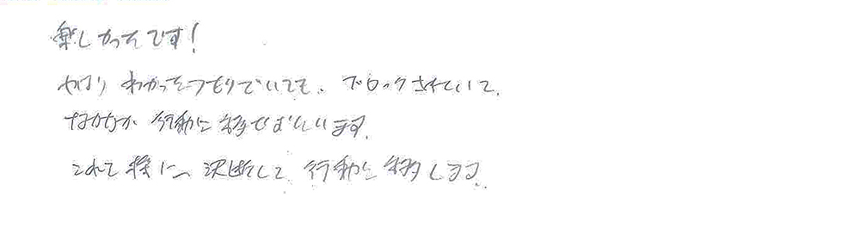 楽しかったです!
やはりわかったつもりでいても、ブロックされていて、
なかなか行動に移せずにいます。
これを機に、決断して、行動に移します。